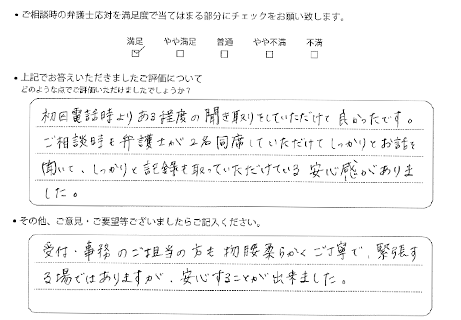 ・ご相談時の弁護士応対を満足度で当てはまる部分にチェックをお願い致します。
満足 やや満足 普通 やや不満 不満
・上記でお答えいただきましたご評価について
どのような点でご評価いただけましたでしょうか?
初回電話時よりある程度の聞き取りをしていただけて良かったです。
ご相談時も弁護士が2名同席していただけてしっかりとお話を
聞いて、しっかりと記録を取っていただけている安心感がありま
した。
・その他、ご意見・ご要望等ございましたらご記入ください。
受付・事務のご担当の方も物腰柔らかくご丁寧で、緊張す
る場ではありますが、安心することが出来ました。